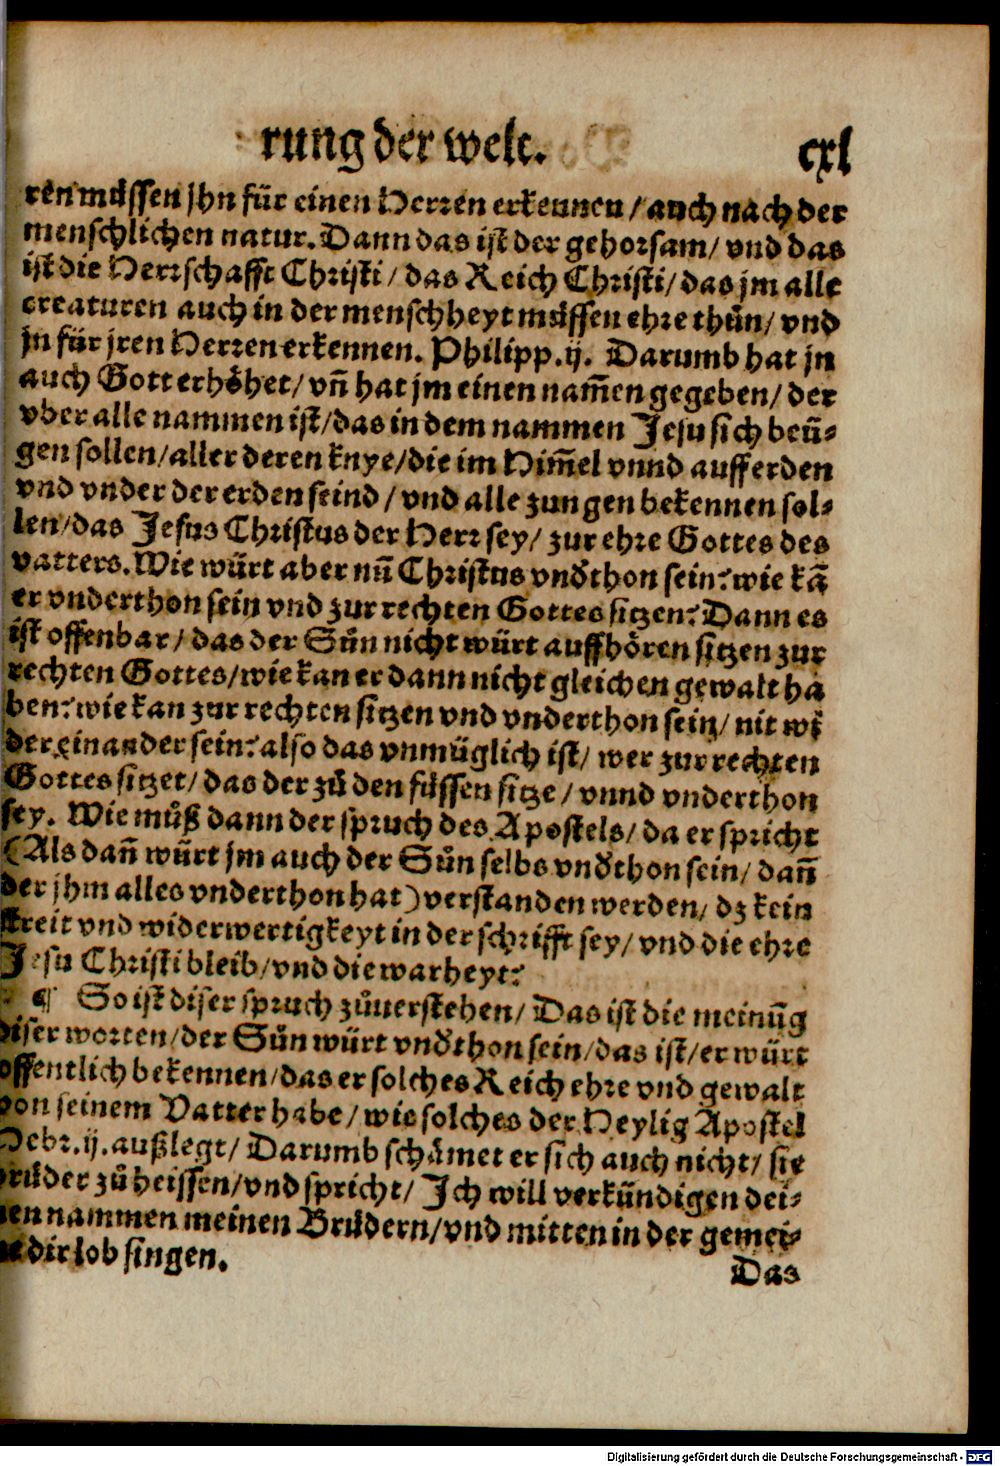 rung der welt.
cxl
ren müssen jhn für einen Herren erkennen / auch nach der
menschlichen natur. Dann das ist der gehorsam / vnd das
ist die Herrschafft Christi / das Reich Christi / das jm alle
creaturen auch in der menschheyt müssen ehre thůn / vnd
jn für jren Herren erkennen. Philipp. ij. Darumb hat jn
auch Gott erhöhet / vñ hat jm einen nam̃en gegeben / der
vber alle nammen ist / das in dem nammen Jesu sich beü⸗
gen sollen / aller deren knye / die im Him̃el vnnd auff erden
vnd vnder der erden seind / vnd alle zungen bekennen sol⸗
len / das Jesus Christus der Herr sey / zur ehre Gottes des
vatters. Wie würt aber nũ Christus vnd̕thon sein? wie kã
er vnderthon sein vnd zur rechten Gottes sitzen? Dann es
ist offenbar / das der Sůn nicht würt auffhören sitzen zur
rechten Gottes / wie kan er dann nicht gleichen gewalt ha
ben? wie kan zur rechten sitzen vnd vnderthon sein / nit wi
der einander sein? also das vnmüglich ist / wer zur rechten
Gottes sitzet / das der zů den füssen sitze / vnnd vnderthon
sey. Wie můß dann der spruch des Apostels / da er spricht
(Als dañ würt jm auch der Sůn selbs vnd̕thon sein / dañ
der jhm alles vnderthon hat) verstanden werden / dz kein
streit vnd widerwertigkeyt in der schrifft sey / vnd die ehre
Jesu Christi bleib / vnd die warheyt?
¶ So ist diser spruch zůuerstehen / Das ist die meinũg
diser worten / der Sůn würt vnd̕thon sein / das ist / er würt
offentlich bekennen / das er solches Reich ehre vnd gewalt
von seinem Vatter habe / wie solches der Heylig Apostel
Hebr. ij. außlegt / Darumb schämet er sich auch nicht / sie
brüder zů heissen / vnd spricht / Ich will verkündigen dei⸗
nen nammen meinen Brüdern / vnd mitten in der gemei⸗
ne dir lob singen.
Das
Digitalisierung gefördert durch die Deutsche Forschungsgemeinschaft - DFG